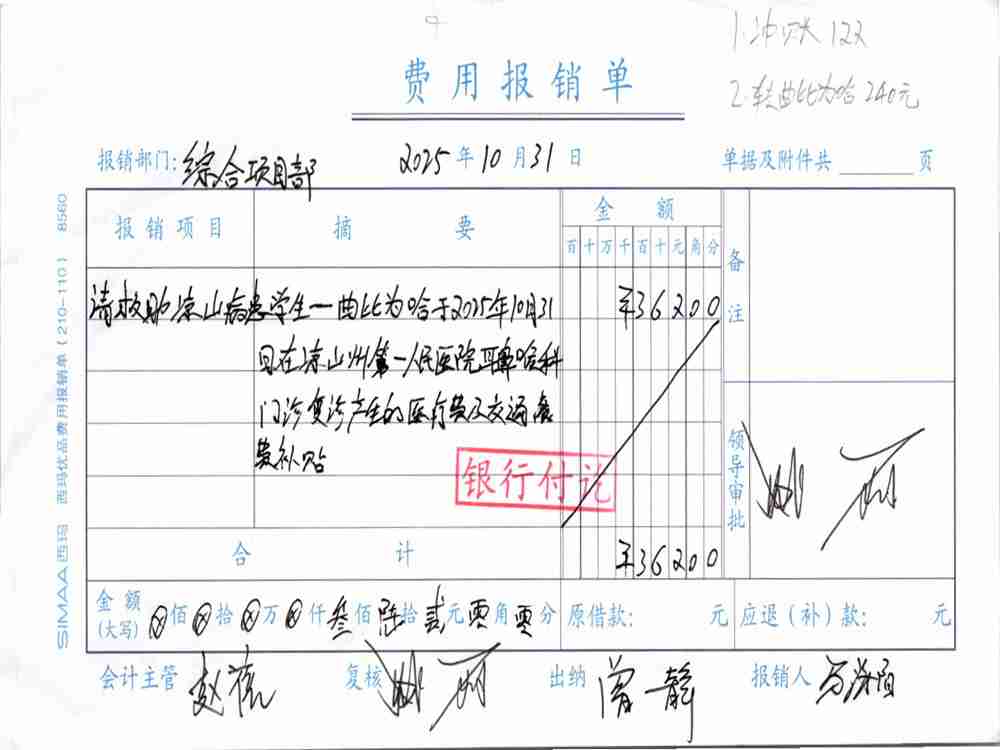 1.冲账 122
2.转曲比为哈 240元
费用报销单
报销部门:综合项目部 2025年10月31日 单据及附件共 页
报销项目 摘要 金额 备注
百十万千百十元角分
请救助凉山病患学生一曲比为哈于2025年10月31 ¥36200
日在凉山州第一人民医院耳鼻喉科
门诊复诊产生的医疗费及交通食
费补贴
银行付讫
领导审批
合计 ¥36200
金额(大写) ⊗佰⊗拾⊗万⊗仟叁佰陆拾贰元零角零分 原借款: 元 应退(补)款: 元
会计主管 复核 出纳 曾静 报销人
SIMAA西玛 西玛优品费用报销单(210-110) 8560